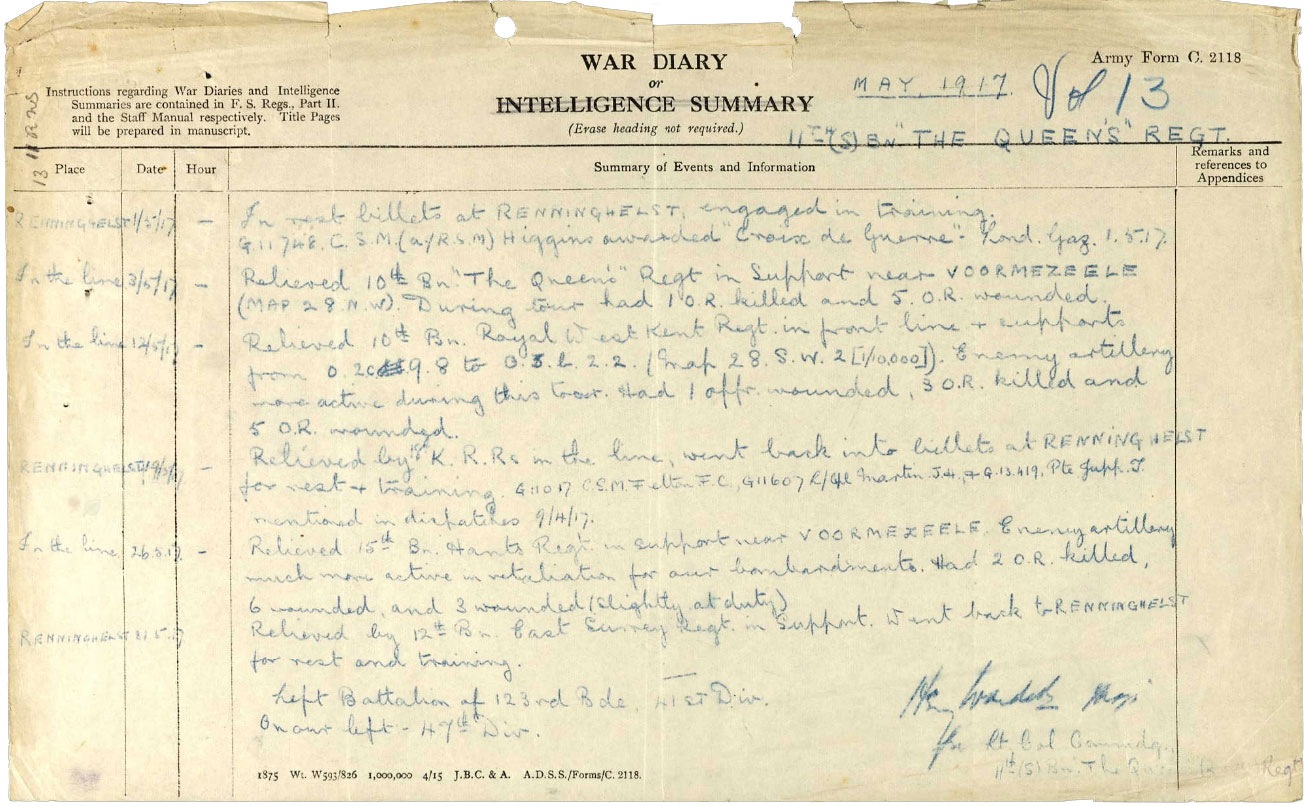 Army Form C. 2118
WAR DIARY
or
INTELLIGENCE SUMMARY
(Erase heading not required.)
MAY. 1917. Vol 13
11TH (S) BN "THE QUEEN'S" REGT.
Instructions regarding War Diaries and Intelligence
Summaries are contained in F. S. Regs., Part II.
and the Staff Manual respectively. Title Pages
will be prepared in manuscript.
13 11 R W S
Place Date Hour Summary of Events and Information Remarks and
references to
Appendices
RENNINGHELST 1/5/17 — In rest billets at RENNINGHELST, engaged in training.
G.11748. C.S.M. (a/R.S.M) Higgins awarded "Croix de Guerre" - Lond. Gaz. 1.5.17.
In the line 3/5/17 — Relieved 10th Bn. "The Queen's" Regt in Support near VOORMEZEELE
(MAP 28 N.W). During tour had 1 O.R. killed and 5. O.R. wounded.
In the line 12/5/17 — Relieved 10th Bn. Royal West Kent Regt. in front line + supports
from O.2c 9.8 to O.3.b.2.2. (Map 28. S.W. 2 [1/10,000]). Enemy artillery
more active during this tour. Had 1 offr. wounded, 3 O.R. killed and
5 O.R. wounded.
RENNINGHELST 19/5/17 — Relieved by K.R.Rs in the line, went back into billets at RENNINGHELST
for rest + training. G11017 C.S.M. Felton F.C., G11607 L/Cpl Martin J.H., + G.13.419. Pte Jupp. T.
mentioned in dispatches 9/4/17.
In the line 26.5.17. — Relieved 15th Bn. Hants Regt. in support near VOORMEZEELE. Enemy artillery
much more active in retaliation for our bombardments. Had 2 O.R. killed,
6 wounded, and 3 wounded (slightly at duty)
RENNINGHELST 31.5.17 Relieved by 12th Bn. East Surrey Regt. in Support. Went back to RENNINGHELST
for rest and training.
Left Battalion of 123rd Bde, 41ST Div.
On our left - 47th Div.
Major
for Lt. Col Commdg.,
11th (S) Bn. "The Queen's" Regt
1875 Wt. W593/826 1,000,000 4/15 J.B.C. & A. A.D.S.S./Forms/C. 2118.